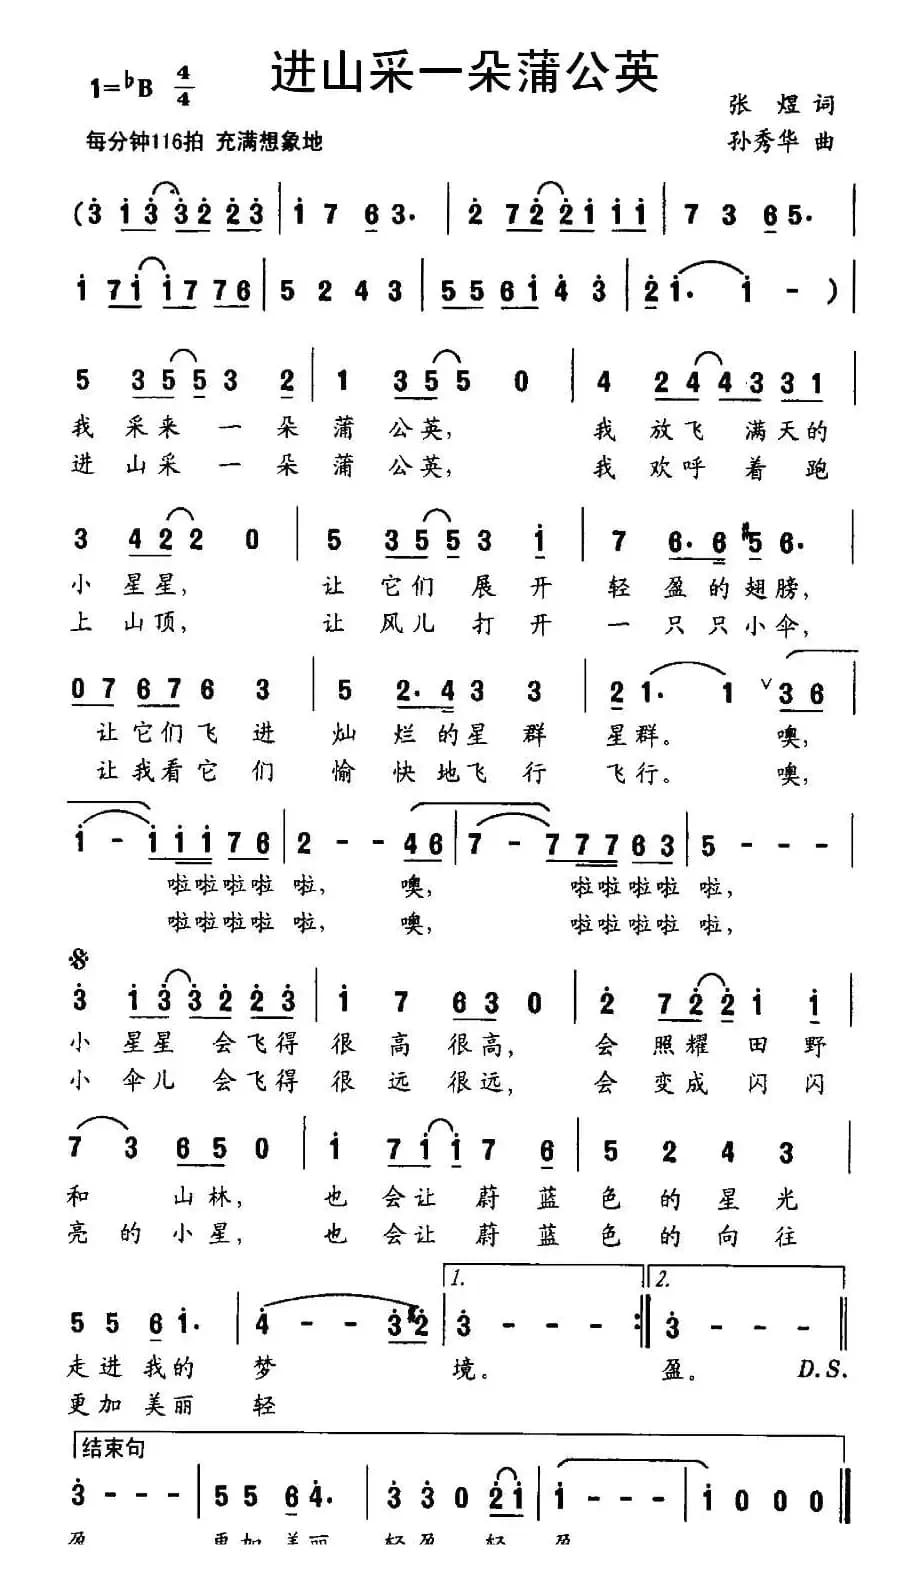 进山采一朵蒲公英
1=♭B 4/4
张 煜 词
每分钟116拍 充满想象地
孙秀华 曲
(3̇ 1̇3̇ 3̇2̇ 2̇3̇ | 1̇ 7 6 3· | 2̇ 72̇ 2̇1̇ 1̇1̇ | 7 3 6 5· |
1̇ 71̇ 1̇7 76 | 5 2 4 3 | 55 61̇ 4̇ 3̇ | 2̇ 1̇· 1̇ - ) |
5 35 5 3 2 | 1 35 5 0 | 4 24 43 3 1 |
我 采来 一 朵 蒲 公英, 我 放飞 满天的
进 山采 一 朵 蒲 公英, 我 欢呼 着 跑
3 42 2 0 | 5 35 5 3 1̇ | 7 6·6 #5 6· |
小 星星, 让 它们 展 开 轻 盈的翅膀,
上 山顶, 让 风儿 打 开 一 只只小伞,
07 67 6 3 | 5 2·4 3 3 | 2 1· 1 ∨ 36 |
让它们飞 进 灿 烂的星 群 星群。 噢,
让我看它 们 愉 快地飞 行 飞行。 噢,
1̇ - 1̇1̇1̇ 76 | 2 - - 46 | 7 - 777 63 | 5 - - - |
啦啦啦啦 啦, 噢, 啦啦啦啦 啦,
啦啦啦啦 啦, 噢, 啦啦啦啦 啦,
3̇ 1̇3̇ 3̇2̇ 2̇3̇ | 1̇ 7 63 0 | 2̇ 72̇ 2̇ 1̇ 1̇ |
小 星星 会飞得 很 高 很高, 会 照耀 田 野
小 伞儿 会飞得 很 远 很远, 会 变成 闪 闪
7 3 65 0 | 1̇ 71̇ 1̇ 7 6 | 5 2 4 3 |
和 山林, 也 会让 蔚 蓝 色 的 星 光
亮 的 小星, 也 会让 蔚 蓝 色 的 向 往
1. 2.
5 5 6 1̇· | 4̇ - - 3̇#2̇ | 3̇ - - - :‖ 3̇ - - - ‖
走进 我的 梦 境。 盈。 D.S.
更加 美丽 轻
结束句
3̇ - - - | 5 5 6 4̇· | 3̇ 3̇ 0 2̇1̇ | 1̇ - - - | 1̇ 0 0 0 ‖
盈 更加美丽 轻盈 轻 盈